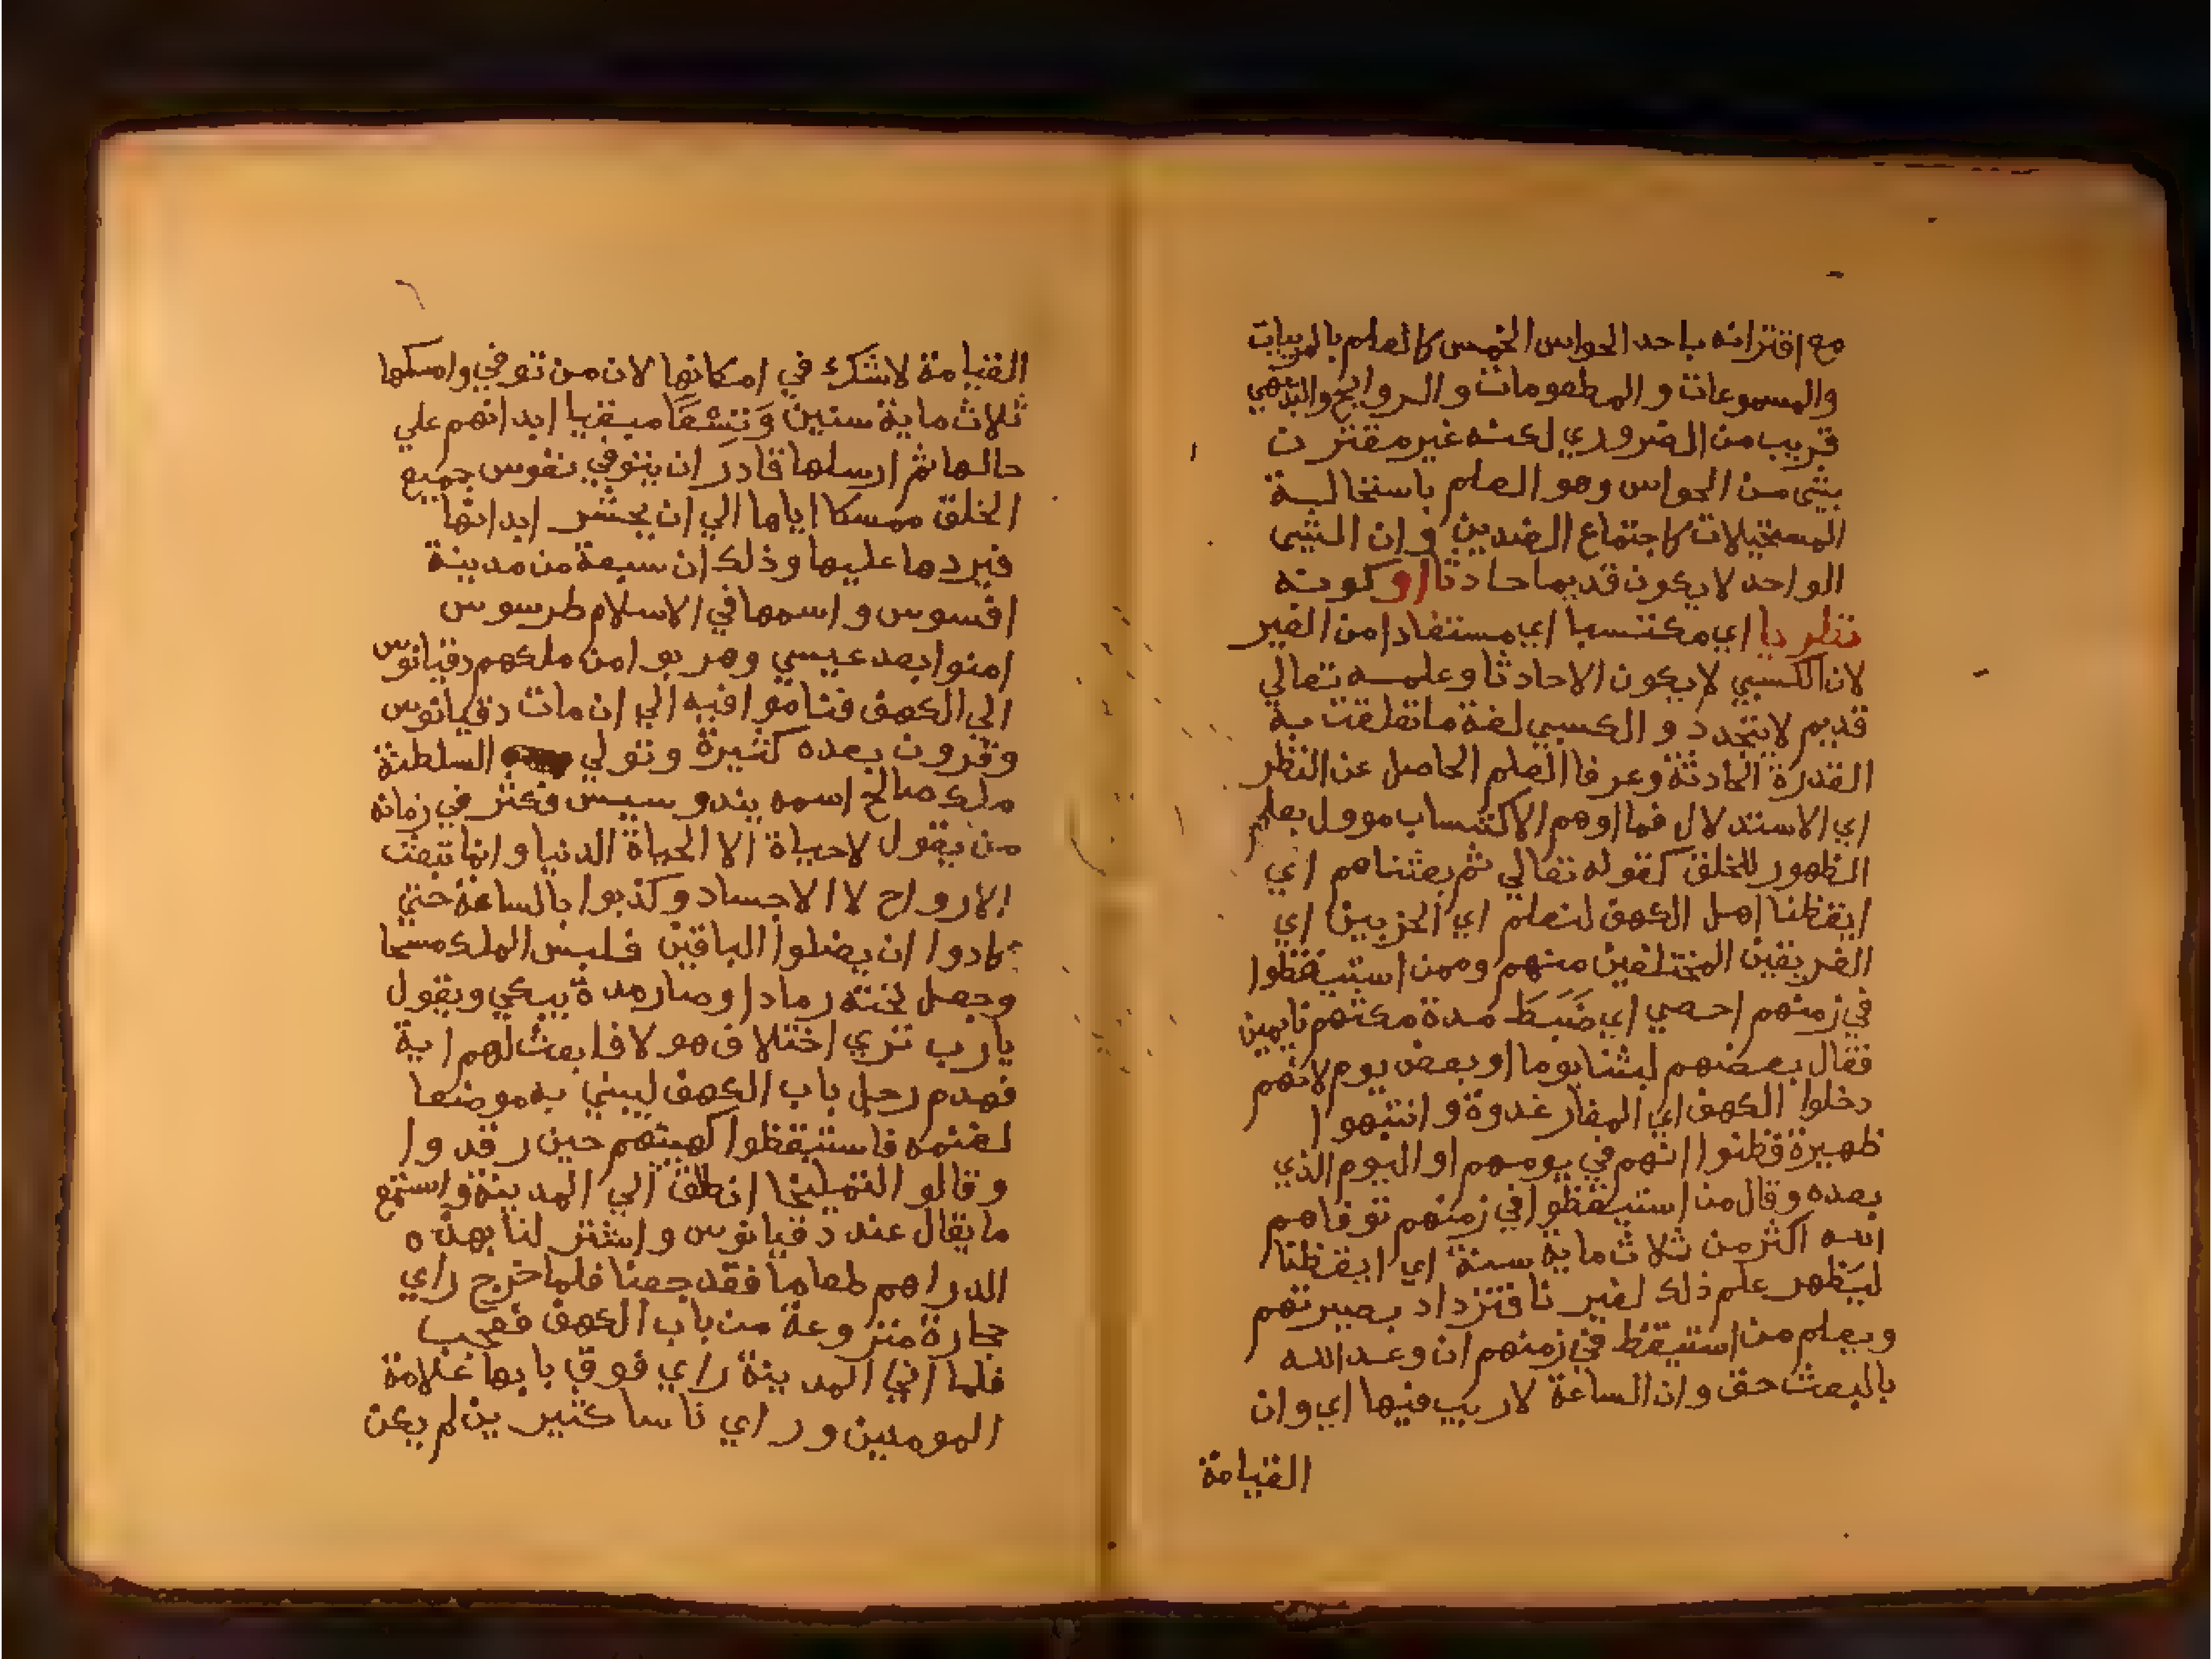 مع اقترانه باحد الحواس الخمس كالعلم بالمرييات
والمسموعات والمطعومات والروايح والبديهي
قريب من الضروري لكنه غير مقترن
بشي من الحواس وهو العلم باستحالية
المستحيلات كاجتماع الضدين وان الشيي
الواحد لا يكون قديما حادثا او كونه
نظريا اي مكتسبا اي مستفادا من الغير
لان الكسبي لا يكون الا حادثا وعلمه تعالي
قديم لا يتجدد والكسبي لغة ما تعلقت به
القدرة الحادثة وعرفا العلم الحاصل عن النظر
اي الاستدلال فما اوهم الاكتساب موول بعلم
الظهور للخلق كقوله تعالي ثم بعثناهم اي
ايقظنا اهل الكهف لنعلم اي الحزبين اي
الفريقين المختلفين منهم وممن استيقظوا
في زمنهم احصي اي ضَبَطَ مدة مكثهم نايمين
فقال بعضهم لبثنا يوما او بعض يوم لانهم
دخلوا الكهف اي المغار غدوة وانتبهوا
ظهيرة فظنوا انهم في يومهم او اليوم الذي
بعده وقال من استيقظوا في زمنهم توفاهم
الله اكثر من ثلاث ماية سنة اي ايقظنا
ليَظهر علم ذلك لغيرنا فتزداد بصيرتهم
ويعلم من استيقظ في زمنهم ان وعد الله
بالبعث حق وان الساعة لا ريب فيها اي وان
القيامة
القيامة لا شك في امكانها لان من توفي وامسكها
ثلاث ماية سنين وَتِسْعًا مبقيا ابدانهم علي
حالها ثم ارسلها قادر ان يتوفي نفوس جميع
الخلق ممسكا اياها الي ان يحشر ابدانها
فيردها عليها وذلك ان سبعة من مدينة
افسوس واسمها في الاسلام طرسوس
امنوا بعد عيسي وهربوا من ملكهم دقيانوس
الي الكهف فناموا فيه الي ان مات دقيانوس
وقرون بعده كثيرة وتولي السلطنة
ملك صالح اسمه بيندوسيس فكثر في زمانه
من يقول لا حياة الا الحياة الدنيا وانما تبعث
الارواح لا الاجساد وكذبوا بالساعة حتي
كادوا ان يضلوا الباقين فلبس الملك مسحا
وجعل تحته رمادا وصار مدة يبكي ويقول
يا رب تري اختلاف هولا فابعث لهم اية
فهدم رجل باب الكهف ليبني به موضعا
لغنمه فاستيقظوا كهيتهم حين رقدوا
وقالو التمليخا انطلق الي المدينة واستمع
ما يقال عند دقيانوس واشتر لنا بهذه
الدراهم طعاما فقد جعنا فلما خرج راي
حجارة منزوعة من باب الكهف فعجب
فلما اتي المدينة راي فوق بابها علامة
المومنين وراي ناسا كثيرين لم يكن